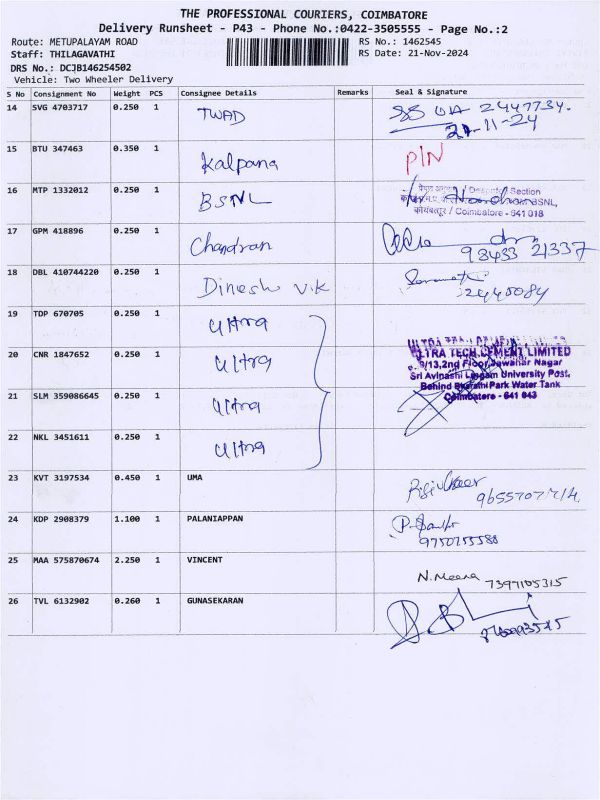 THE PROFESSIONAL COURIERS, COIMBATORE
Delivery Runsheet - P43 - Phone No.:0422-3505555 - Page No.:2
Route: METUPALAYAM ROAD RS No.: 1462545
Staff: THILAGAVATHI RS Date: 21-Nov-2024
DRS No.: DCJB146254502
Vehicle: Two Wheeler Delivery
S No Consignment No Weight PCS Consignee Details Remarks Seal & Signature
14 SVG 4703717 0.250 1 TWAD 2447734.
21-11-24
15 BTU 347463 0.350 1 Kalpana PIN
16 MTP 1332012 0.250 1 BSNL Section
BSNL,
कोयंबत्तूर / Coimbatore - 641 018
17 GPM 418896 0.250 1 Chandran
98433 21337
18 DBL 410744220 0.250 1 Dinesh V.K
2440084
19 TDP 670705 0.250 1 Ultra
20 CNR 1847652 0.250 1 Ultra ULTRA TECH CEMENT LIMITED
2nd Floor, Jawahar Nagar
21 SLM 359086645 0.250 1 Ultra Sri Avinashi Lingam University Post,
Behind Bharathi Park Water Tank
Coimbatore - 641 043
22 NKL 3451611 0.250 1 Ultra
23 KVT 3197534 0.450 1 UMA
24 KDP 2908379 1.100 1 PALANIAPPAN
25 MAA 575870674 2.250 1 VINCENT N. Meena 7397105315
26 TVL 6132902 0.260 1 GUNASEKARAN